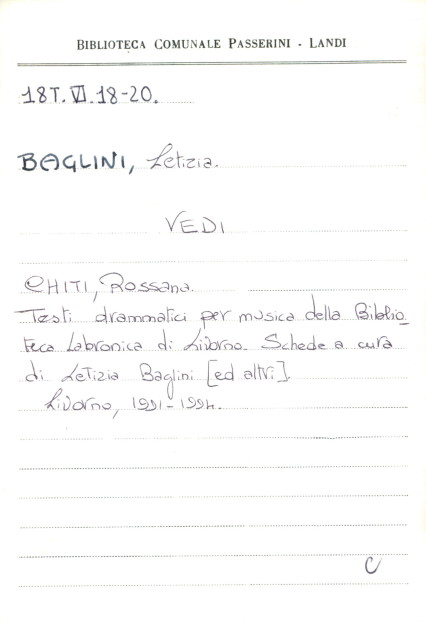 BIBLIOTECA COMUNALE PASSERINI - LANDI
18T.VI.18-20.
BAGLINI, Letizia.
VEDI
CHITI, Rossana.
Testi drammatici per musica della Biblio_
teca Labronica di Livorno. Schede a cura
di Letizia Baglini [ed altri].
Livorno, 1991-1994.
C